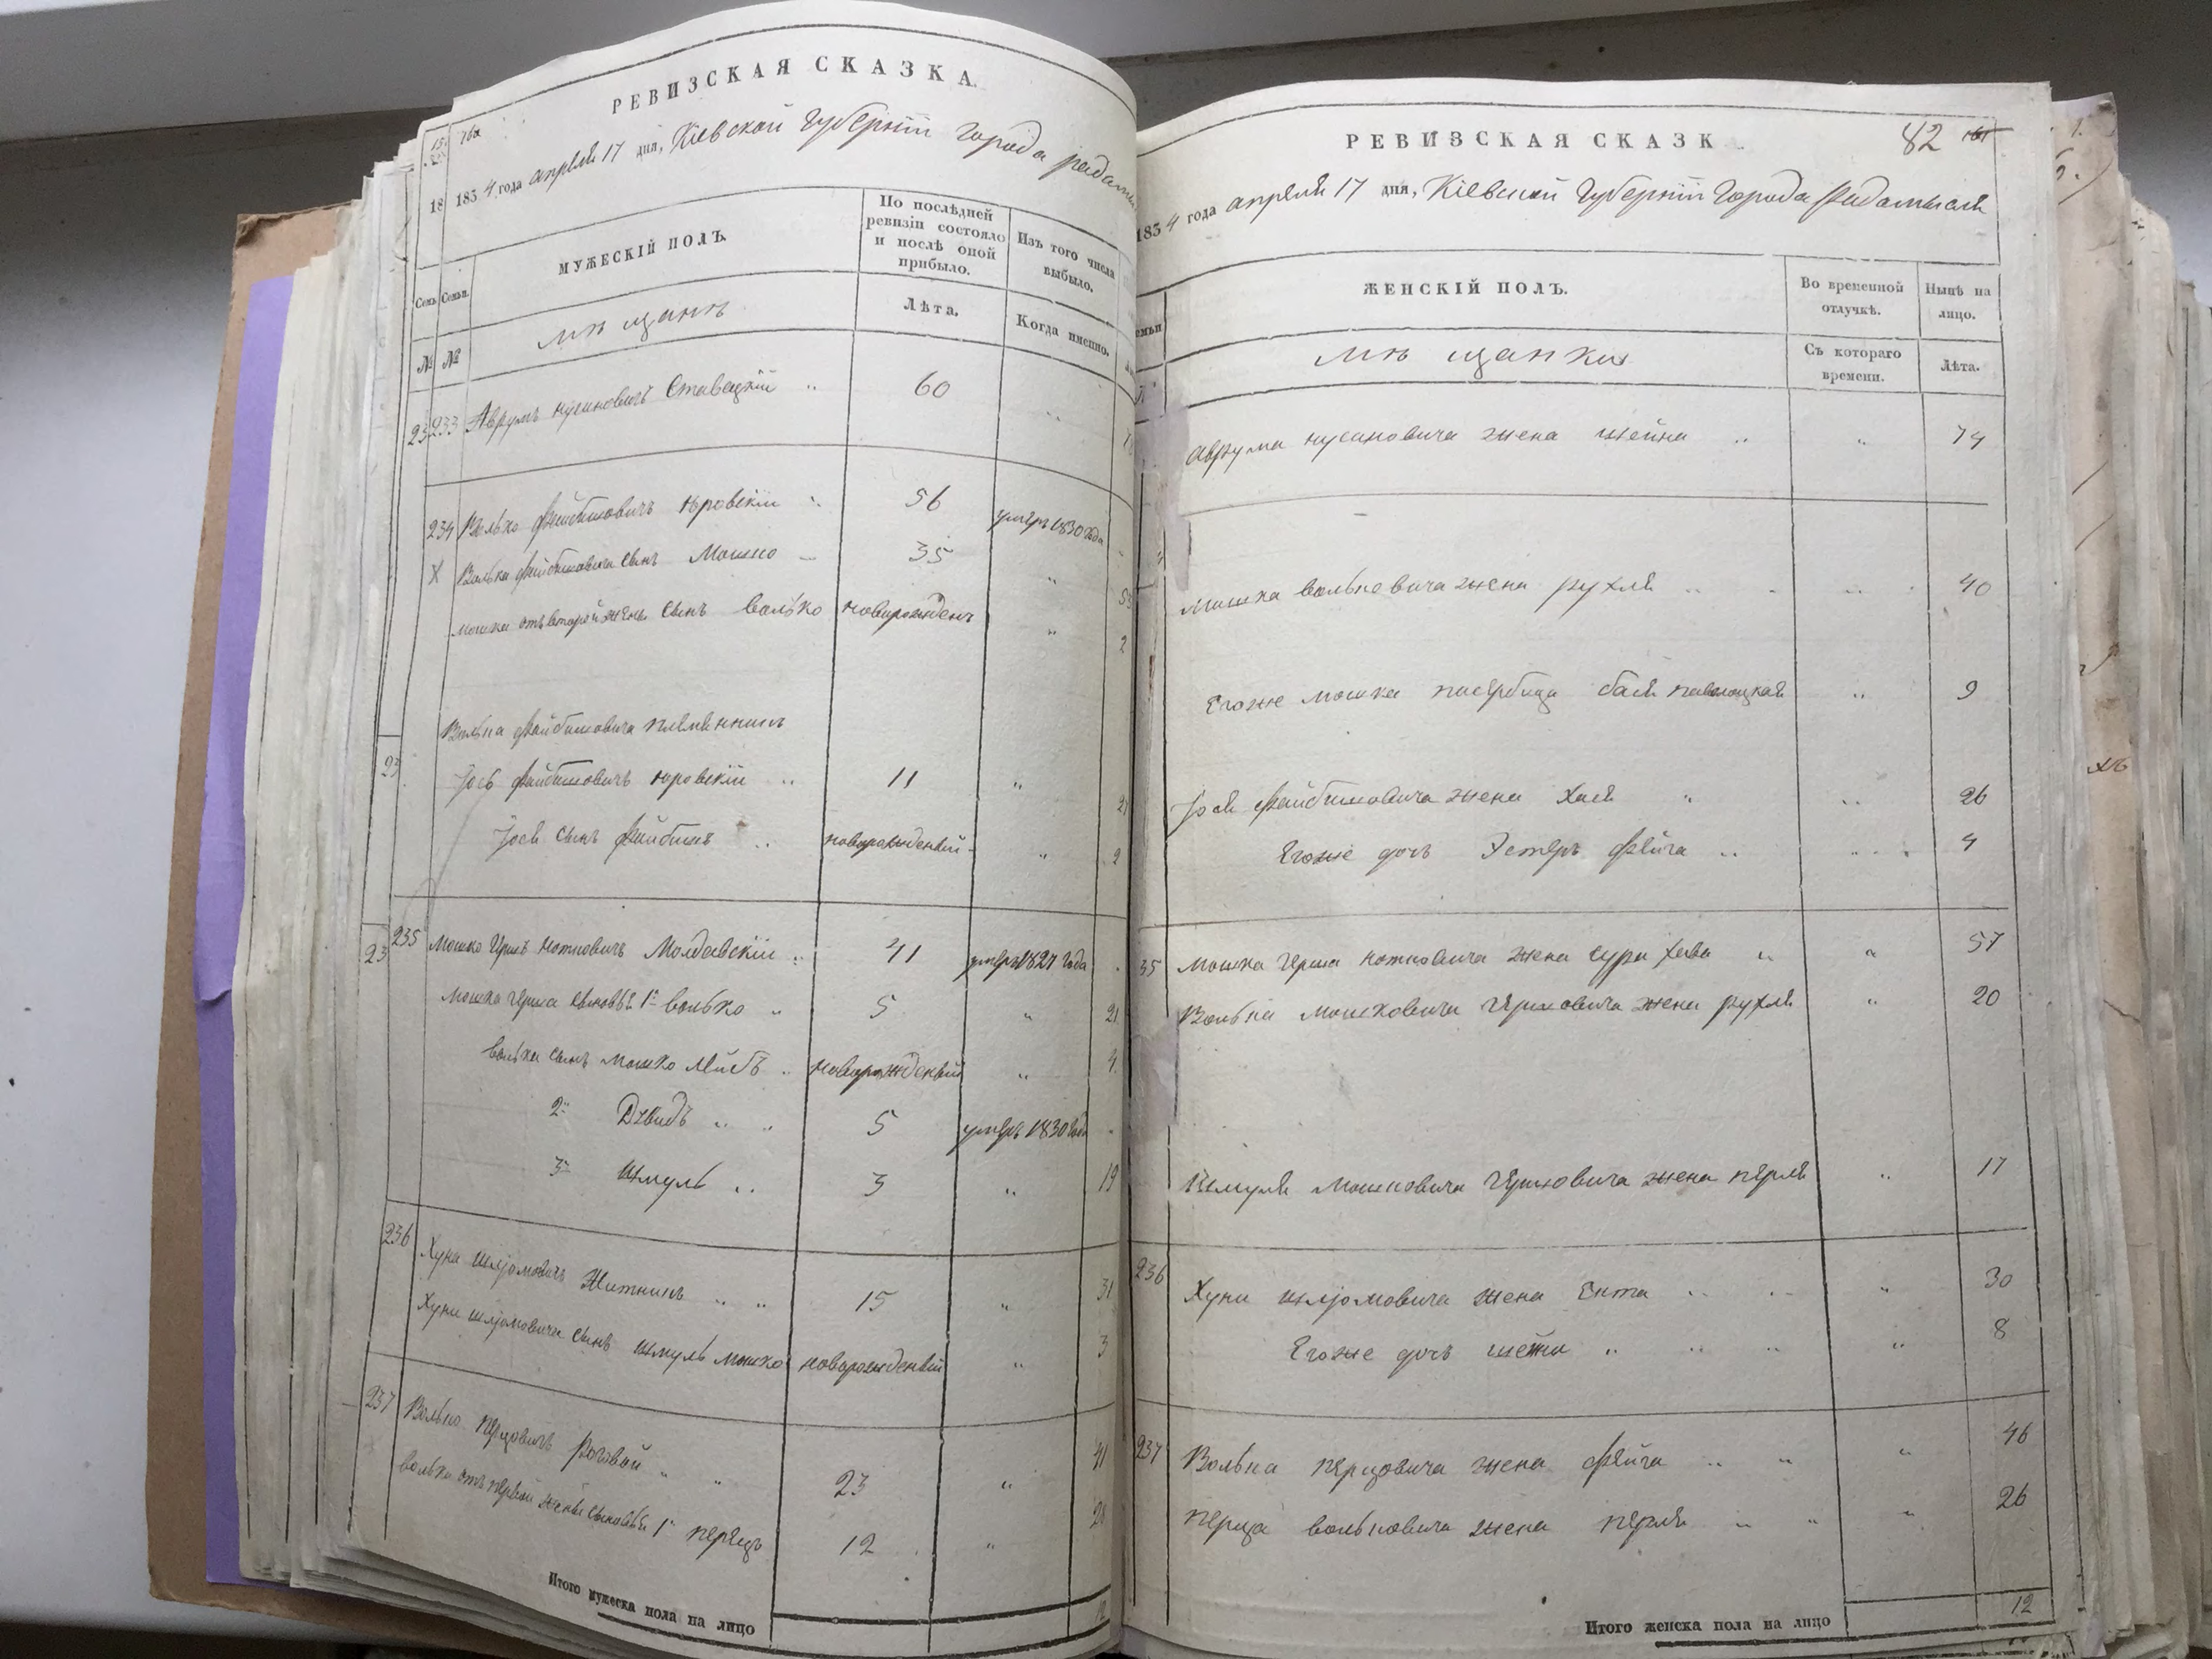 РЕВИЗСКАЯ СКАЗКА.
1834 года апреля 17 дня, Кіевской Губерніи города радом
МУЖЕСКІЙ ПОЛЪ.
По послѣдней ревизіи состояло и послѣ оной прибыло.
Изъ того числа выбыло.
Семьи.
мѣщанъ
Лѣта.
Когда именно.
№ №
233 Аврумъ нусиновичъ Ставецкій 60
234 Волько Файбишовичъ юровскій 56 умеръ 1830 года
X Волька файбишовича сынъ Мошко 35
мошка отъ второй жены сынъ волько новорожденъ 2
Волька файбишовича племенникъ
Іось файбишовичъ юровскій 11 21
Іося сынъ файбишъ новорожденый 2
235 Мошко Гершъ нотковичъ Молдавскій 41 умеръ 1827 года
мошка герша сыновья 1й волько 5 21
волька сынъ мошко лейбъ новорожденый 4
2й Давидъ 5 умеръ 1830 года
3й Шмуль 3 19
236 Хуна шліомовичъ Житникъ 15 31
Хуны шліомовича сынъ шмуль мошко новорожденый 3
237 Волько перцовичъ Роговой 23 41
волька отъ первой жены сыновья 1й перецъ 12
Итого мужеска пола на лицо
82
РЕВИЗСКАЯ СКАЗК
1834 года апреля 17 дня, Кіевской Губерніи Города Радамысля
ЖЕНСКІЙ ПОЛЪ.
Во временной отлучкѣ.
Нынѣ на лицо.
мѣщанки
Съ котораго времени.
Лѣта.
Аврума нусиновича жена шейна 74
мошка вольковича жена рухля 40
Егоже мошка пасербица бася паволоцкая 9
Іося файбишовича жена хая 26
Егоже дочъ Эстеръ фейга 4
35 мошка герша нотковича жена сура хава 57
Волька мошковича гершовича жена рухля 20
Шмуля мошковича гершовича жена перля 17
236 Хуны шліомовича жена Ента 30
Егоже дочъ шейна 8
237 Волька перцовича жена фейга 46
перца вольковича жена перля 26
Итого женска пола на лицо 12